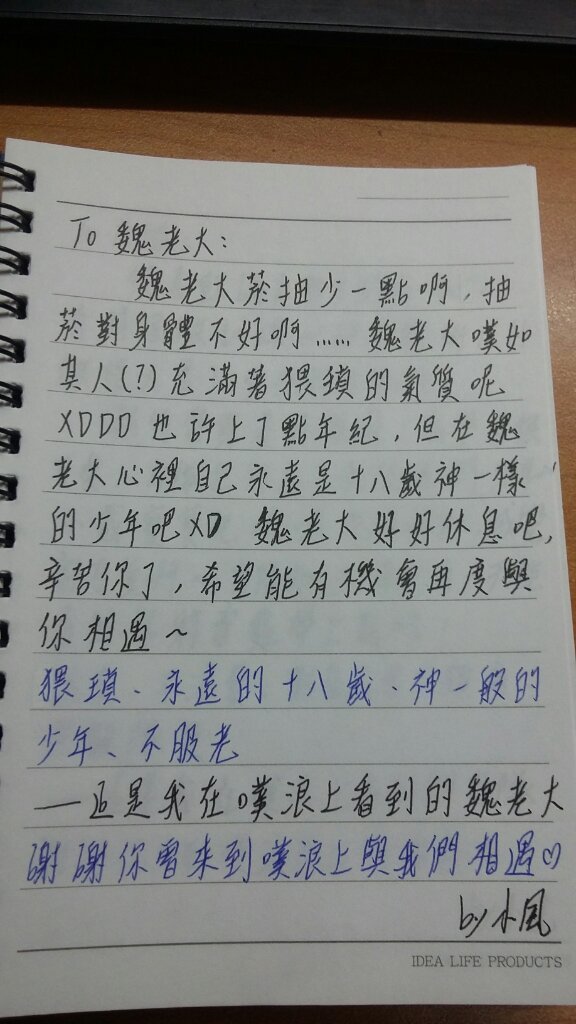 To 魏老大：
魏老大菸抽少一點啊，抽
菸對身體不好啊……魏老大噗如
其人(?)充滿著猥瑣的氣質呢
XDDD 也許上了點年紀，但在魏
老大心裡自己永遠是十八歲神一樣
的少年吧XD 魏老大好好休息吧，
辛苦你了，希望能有機會再度與
你相遇～
猥瑣、永遠的十八歲、神一般的
少年、不服老
——這是我在噗浪上看到的魏老大
謝謝你曾來到噗浪上與我們相遇♡
by 小風
IDEA LIFE PRODUCTS